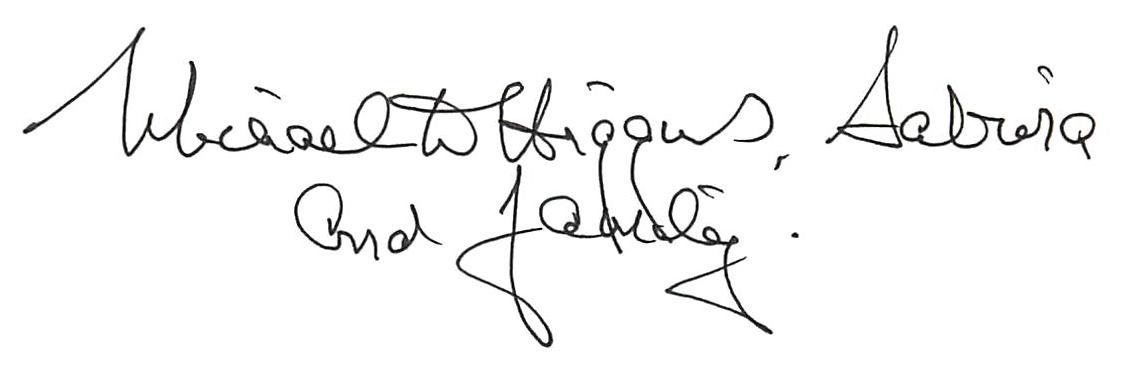 Michael D Higgins, Sabina
and family.